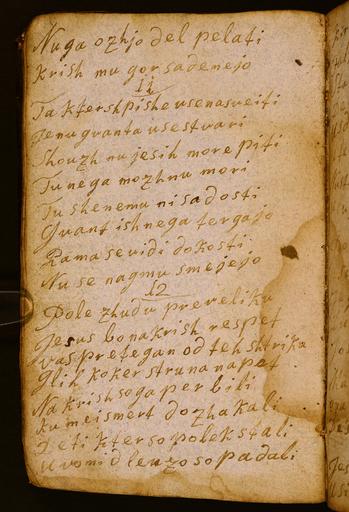 Nuga ozhjo del pelati
krish mu gor sadenejo
11
Ta kter shpishe vse nasveiti
Zenu gvanta vse stvari
Shouzh nu jesih more piti
Tu nega mozhnu mori
Tu shenemu ni sadosti
Gvant ish nega tergajo
Rama se vidi do kosti
Nu se nagmu smejejo
12
Pole zhudu preveliku
Jesus bo na krish respet
vas pretegan od teh shtrika
Glih koker struna napet
Na krish so ga perbili
ku mei smert dozhakali
Zeti kter so polek stali